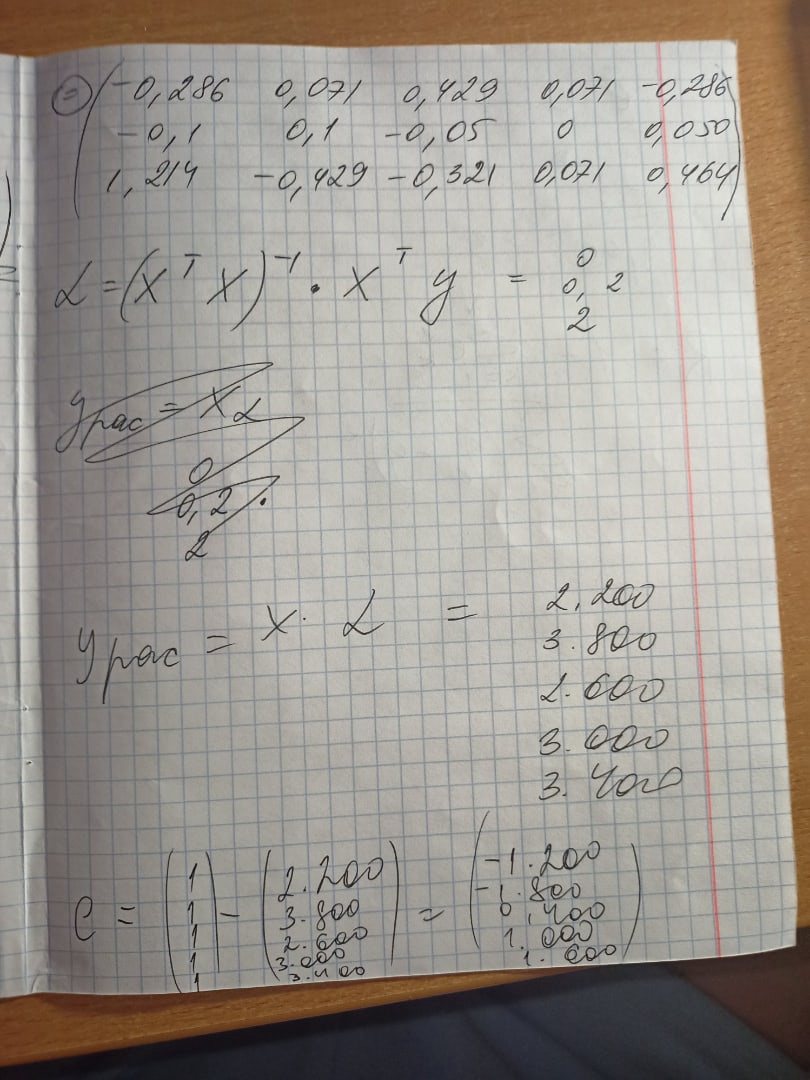 = -0,286 0,071 0,429 0,071 -0,286
-0,1 0,1 -0,05 0 0,050
1,214 -0,429 -0,321 0,071 0,464
L = (X^T X)^-1 · X^T y = 0
0, 2
2
y рас = X L
0
0,2 .
2
y рас = X · L = 2.200
3.800
2.600
3.000
3.400
e = (1 1 1 1 1) - (2.200 3.800 2.600 3.000 3.400) = (-1.200 -1.800 0,400 1.000 1.600)